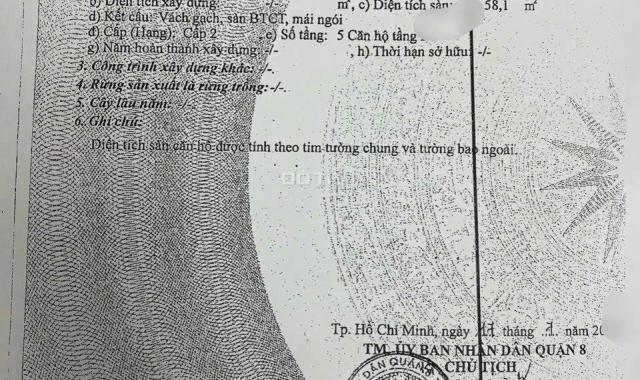 b) Diện tích xây dựng: -/- m², c) Diện tích sàn: 58,1 m²
d) Kết cấu: Vách gạch, sàn BTCT, mái ngói
đ) Cấp (Hạng): Cấp 2 e) Số tầng: 5 Căn hộ tầng
g) Năm hoàn thành xây dựng: -/- , h) Thời hạn sở hữu: -/-
3. Công trình xây dựng khác: -/-
4. Rừng sản xuất là rừng trồng: -/-
5. Cây lâu năm: -/-
6. Ghi chú:
Diện tích sàn căn hộ được tính theo tim tường chung và tường bao ngoài.
Tp. Hồ Chí Minh, ngày tháng 1 năm 20
TM. ỦY BAN NHÂN DÂN QUẬN 8
CHỦ TỊCH
DÂN QUẬN